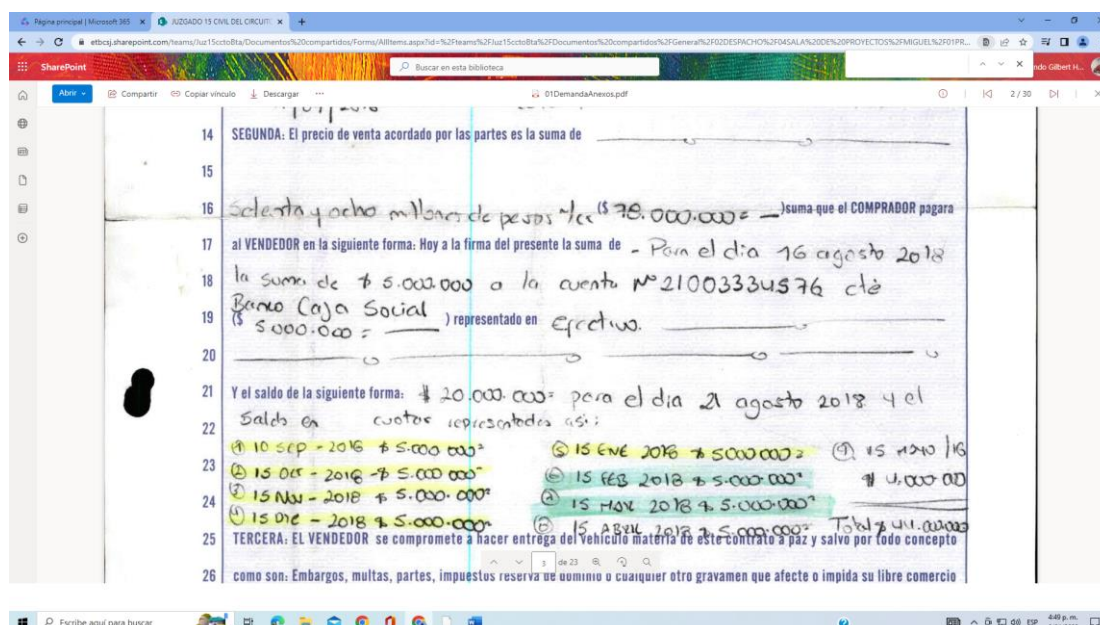 Página principal | Microsoft 365
JUZGADO 15 CIVIL DEL CIRCUIT
etbcsj.sharepoint.com/teams/Juz15cctoBta/Documentos%20compartidos/Forms/AllItems.aspx?id=%2Fteams%2FJuz15cctoBta%2FDocumentos%20compartidos%2FGeneral%2F02DESPACHO%2F04SALA%20DE%20PROYECTOS%2FMIGUEL%2F01PR...
SharePoint
Buscar en esta biblioteca
ndo Gilbert H...
Abrir
Compartir
Copiar vínculo
Descargar
01DemandaAnexos.pdf
2 / 30
14 SEGUNDA: El precio de venta acordado por las partes es la suma de
15
16 Setenta y ocho millones de pesos m/cx ($ 78.000.000= )suma que el COMPRADOR pagara
17 al VENDEDOR en la siguiente forma: Hoy a la firma del presente la suma de - Para el dia 16 agosto 2018
18 la suma de $ 5.000.000 a la cuenta Nº 21003334576 cte
Banco Caja Social
19 ($ 5000.000= ) representado en efectivo.
20
21 Y el saldo de la siguiente forma: $ 20.000.000= para el dia 21 agosto 2018 y el
22 Saldo en cuotas representadas asi:
① 10 SEP - 2018 $ 5.000.000= ⑤ 15 ENE 2018 $ 5000000= ⑨ 15 MAYO /18
23 ② 15 OCT - 2018 - $ 5.000.000= ⑥ 15 FEB 2018 $ 5.000.000= $ 4.000.000
24 ③ 15 NOV - 2018 $ 5.000.000= ⑦ 15 MAR 2018 $ 5.000.000=
④ 15 DIC - 2018 $ 5.000.000= ⑧ 15 ABRIL 2018 $ 5.000.000= Total $ 44.000.000
25 TERCERA: EL VENDEDOR se compromete a hacer entrega del vehículo materia de este contrato a paz y salvo por todo concepto
3 de 23
26 como son: Embargos, multas, partes, impuestos reserva de dominio o cualquier otro gravamen que afecte o impida su libre comercio
Escribe aquí para buscar
ESP
4:49 p. m.